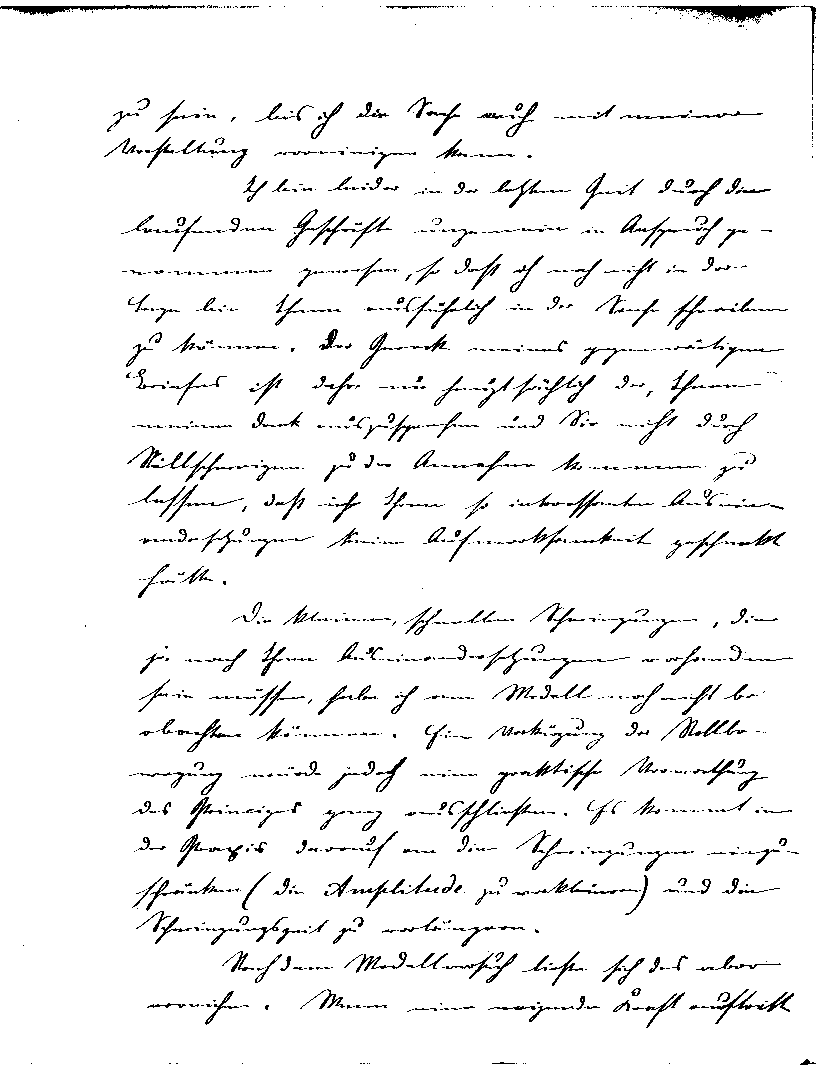 zu sein, bis ich die Sache auch mit meiner
Vorstellung vereinigen kann.
Ich bin leider in der letzten Zeit durch die
laufenden Geschäfte ungemein in Anspruch ge-
nommen gewesen, so daß ich noch nicht in der
Lage bin Ihnen ausführlich in der Sache schreiben
zu können. Der Zweck meines gegenwärtigen
Briefes ist daher nur hauptsächlich der, Ihnen
meinen Dank auszusprechen und Sie nicht durch
Stillschweigen zu der Annahme kommen zu
lassen, daß ich Ihren so interessanten Ausein-
andersetzungen keine Aufmerksamkeit geschenkt
hätte.
Die kleinen, schnellen Schwingungen, die
ja nach Ihren Auseinandersetzungen vorhanden
sein müssen, habe ich am Modell noch nicht be
obachten können. Eine Verkürzung der
würde jedoch eine praktische Verwerthung
des Principes ganz ausschließen. Es kommt in
der Praxis darauf an die Schwingungen einzu-
schränken (die Amplitude zu verkleinern) und die
Schwingungszeit zu verlängern.
Nach dem Modellversuch ließe sich das aber
erreichen. Wenn eine Kraft auftritt